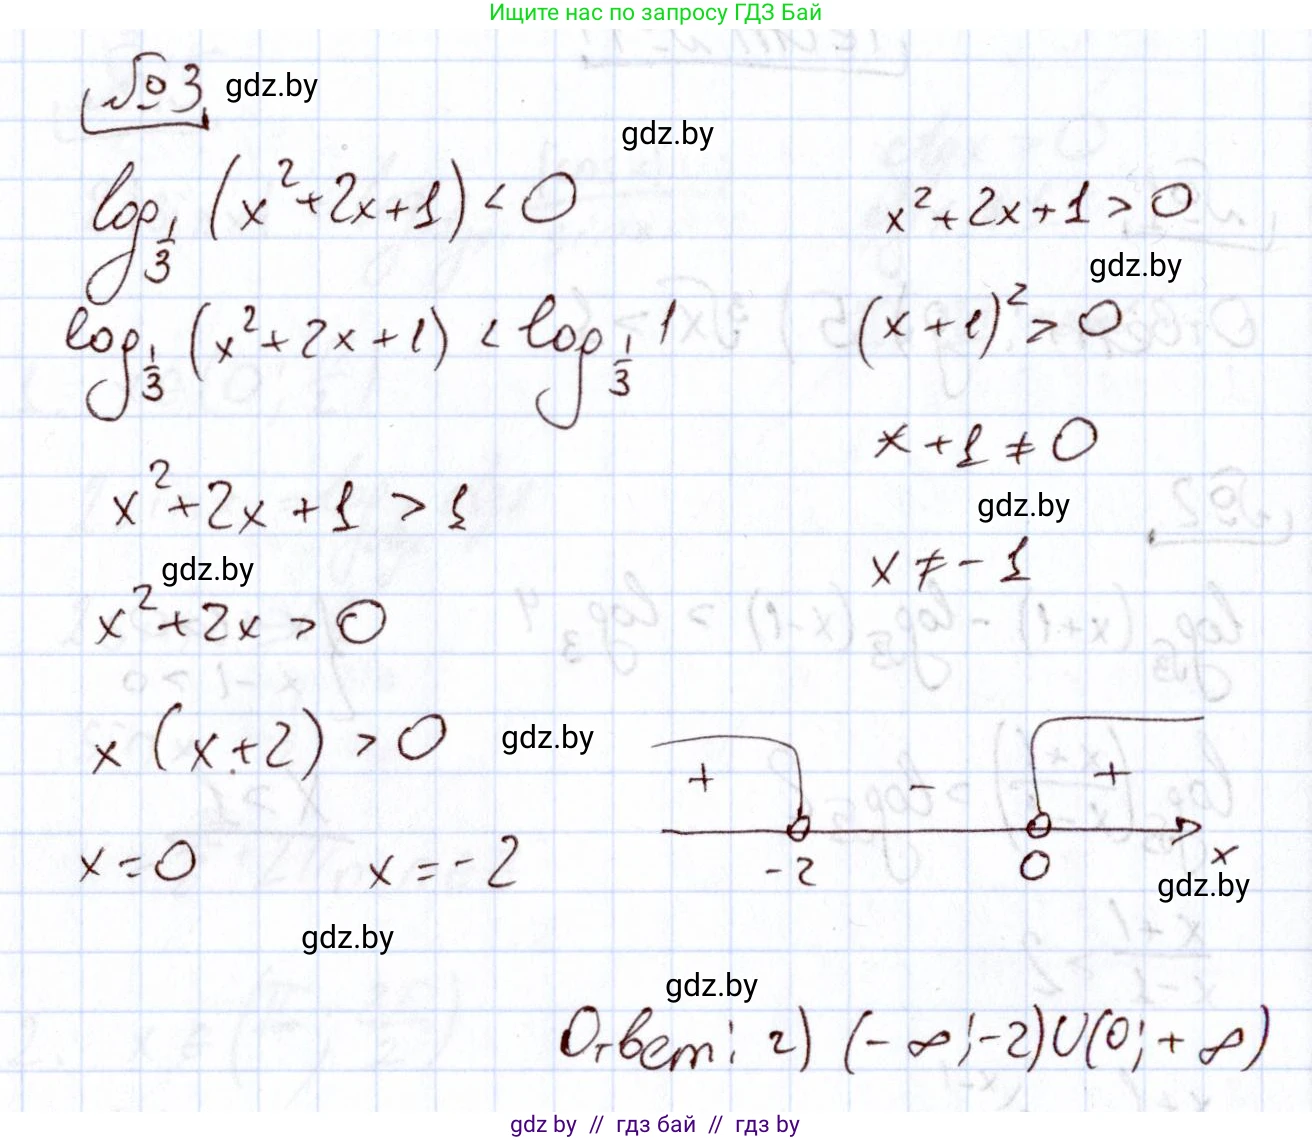 Ищите нас по запросу ГДЗ Бай
№3 gdz.by
gdz.by
log_{1/3} (x² + 2x + 1) < 0
x² + 2x + 1 > 0
gdz.by
log_{1/3} (x² + 2x + 1) < log_{1/3} 1
(x + 1)² > 0
x + 1 ≠ 0
x² + 2x + 1 > 1
gdz.by
gdz.by
x ≠ -1
x² + 2x > 0
x (x + 2) > 0
gdz.by
+ - +
-2 0 x
x = 0 x = -2
gdz.by
gdz.by
gdz.by
Ответ: г) (-∞; -2) ∪ (0; +∞)
gdz.by // гдз бай // гдз by